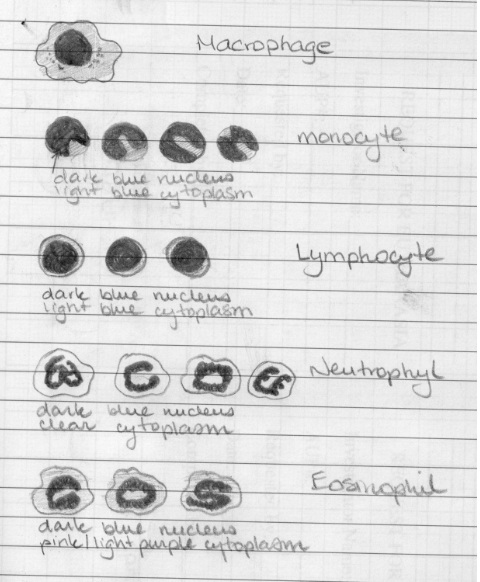 Macrophage
monocyte
dark blue nucleus
light blue cytoplasm
Lymphocyte
dark blue nucleus
light blue cytoplasm
Neutrophyl
dark blue nucleus
clear cytoplasm
Eosinophil
dark blue nucleus
pink/light purple cytoplasm